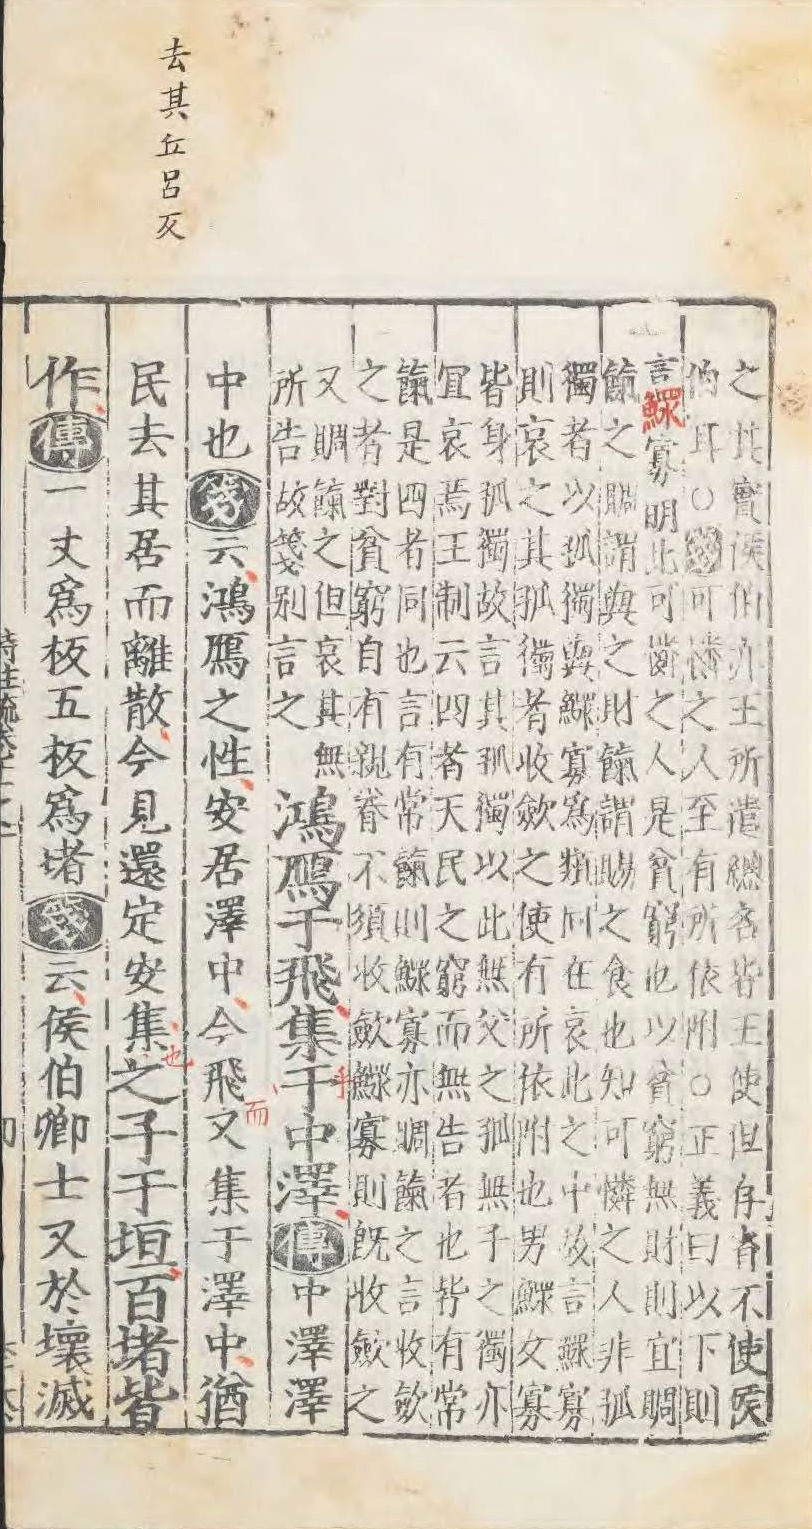 去其丘呂反
之其實侯伯亦王所遣緫名皆王使但存省不使侯
伯耳○可憐之人至有所依附○正義曰以下則
言鰥寡明此可憐之人是貧窮也以貧窮無財則宜賙
餼之賙謂與之財餼謂賜之食也知可憐之人非孤
獨者以孤獨與鰥寡爲類同在哀此之中故言鰥寡
則哀之其孤獨者收斂之使有所依附也男鰥女寡
皆身孤獨故言其孤獨以此無父之孤無子之獨亦
宜哀焉王制云四者天民之窮而無告者也皆有常
餼是四者同也言有常餼則鰥寡亦賙餼之言收斂
之者對貧窮自有親眷不須收斂鰥寡則既收斂之
又賙餼之但哀其無
所告故箋别言之
鴻鴈于飛集于中澤傳中澤澤
乎
中也箋云鴻鴈之性安居澤中今飛又集于澤中猶
而
民去其居而離散今見還定安集之子于垣百堵皆
也
作傳一丈爲板五板爲堵箋云侯伯卿士又於壞滅